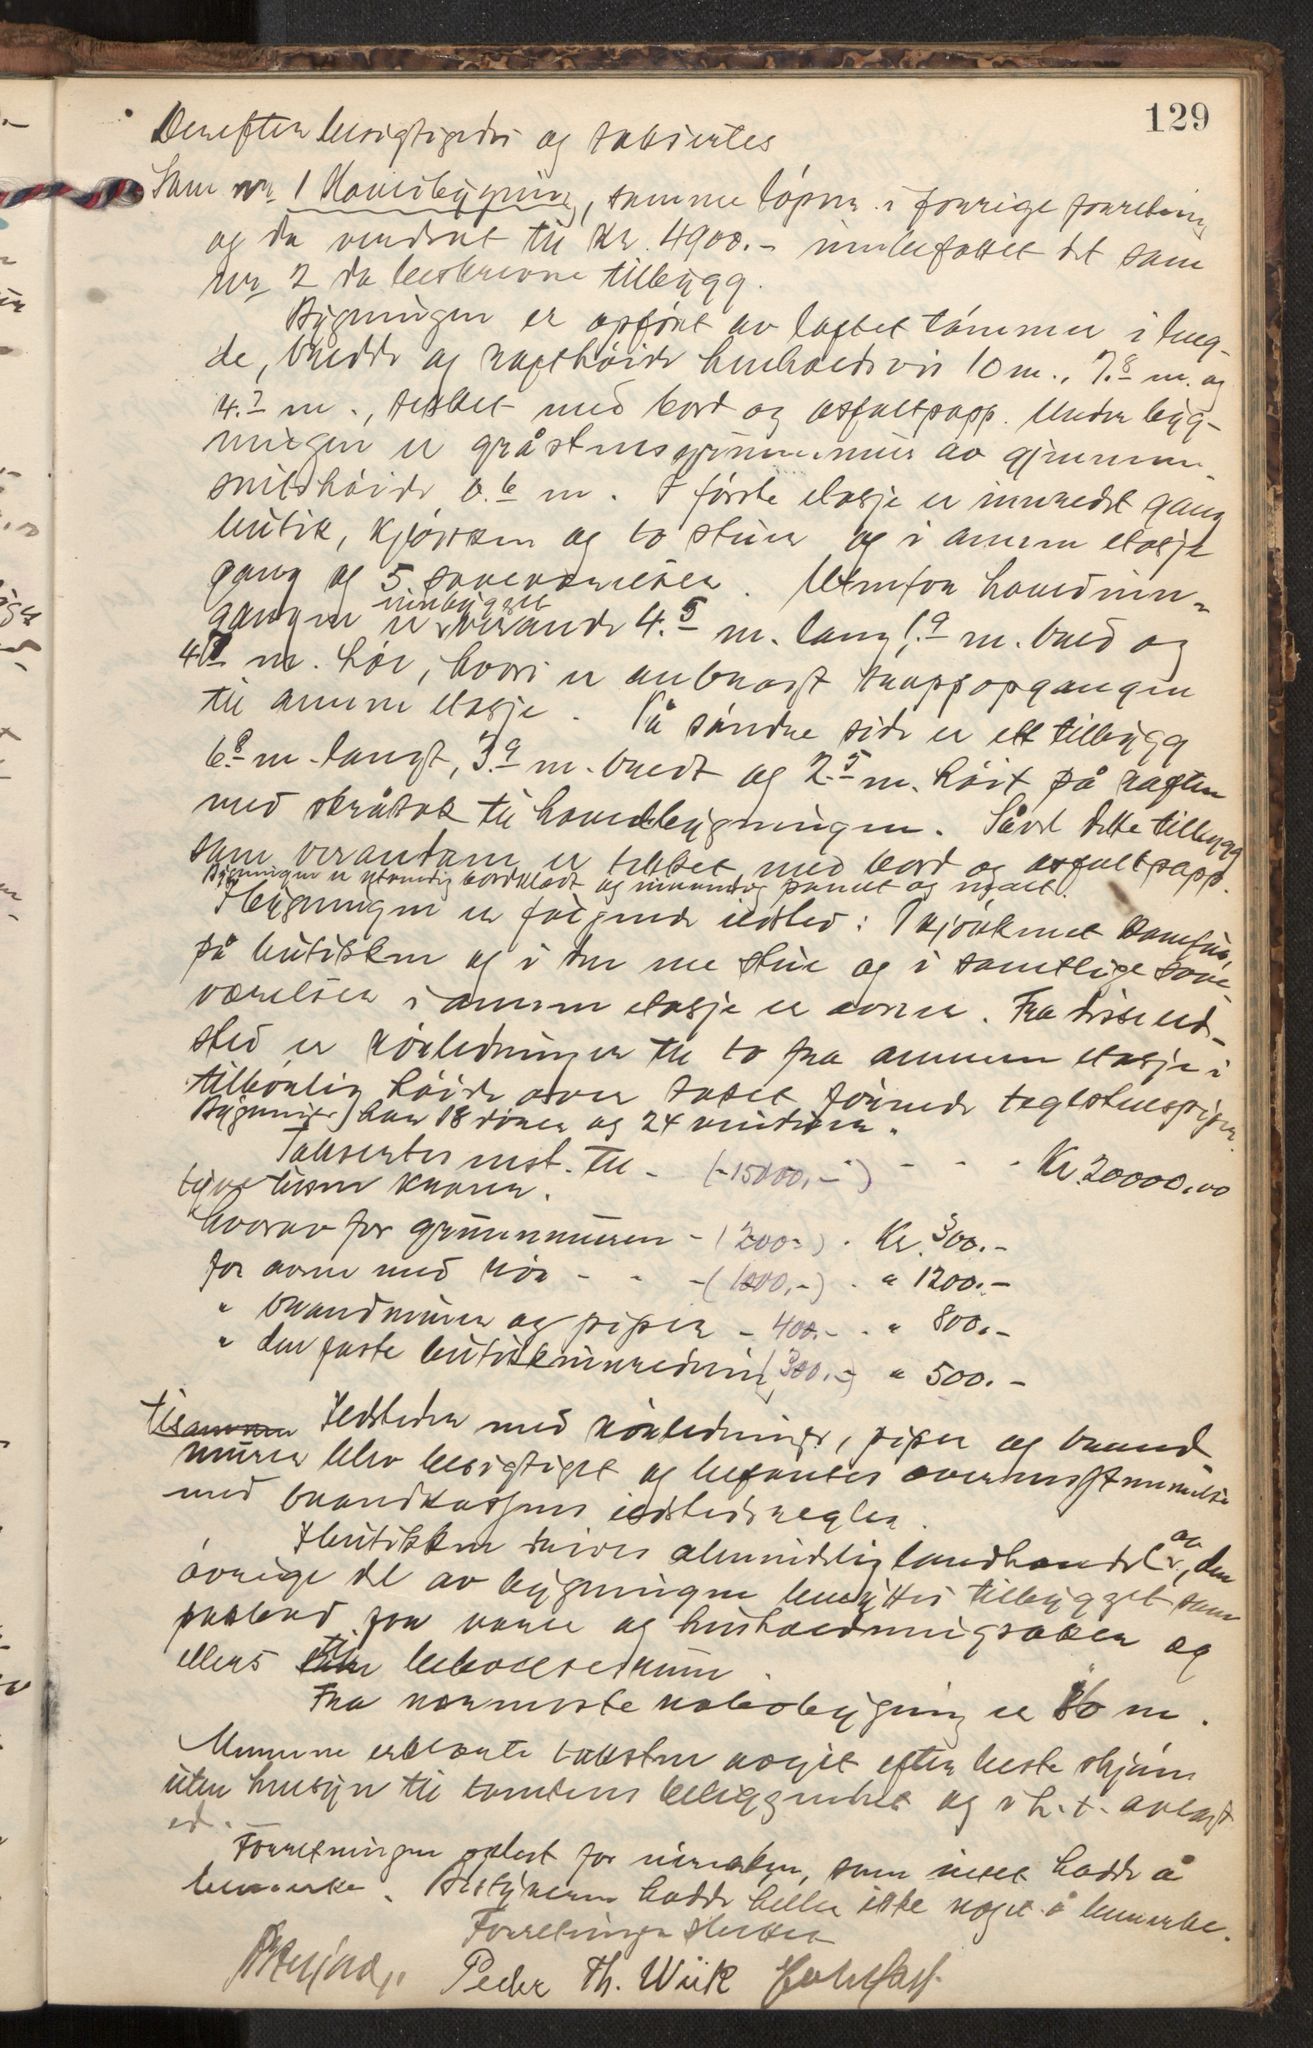 129
Derefter besigtigedes og taksertes
Som nr. 1 Hovedbygning, samme löpnr. i forrige forretning
og da vurdert til Kr. 4900.- innbefattet det som
nr. 2 da beskrevne tilbygg.
Bygningen er opfört av laftet tömmer i leng-
de, bredde og rafthöide henholdsvis 10 m., 7.8 m. og
4.7 m., tekket med bord og asfaltpapp. Under byg-
ningen er gråstensgrunnmur av gjennem-
snitshöide 0.6 m. I förste etasje er innredet gang
butik, kjökken og to stuer og i annen etasje
gang og 5 soveværelser. Utenfor hovedinn-
gangen er innbygget veranda 4.5 m. lang, 1.9 m. bred og
4.7 m. höi, hvori er anbragt trappopgangen
til annen etasje. På söndre side er ett tilbygg
6.8 m. langt, 3.9 m. bredt og 2.5 m. höit på raften
med skråtak til hovedbygningen. Såvel dette tilbygg
som verandaen er tekket med bord og asfaltpapp.
Bygningen er utvendig bordklædt og innvendig panelt og malt.
I bygningen er fölgende ildsted: I kjökkenet komfur,
på butikken og i den ene stue og i samtlige sove-
værelser i annen etasje er ovner. Fra disse ild-
sted er rörledninger til to fra annen etasje i
tilbörlig höide over taket förende teglstenspiper.
Bygningen har 18 dörer og 24 vinduer.
Taksertes nest. til - (-15000,-) - - - Kr. 20000,00
tyve tusen kroner.
hvorav for grunnmuren - (200-) . Kr. 300.-
for ovne med rör - - - (1000,-) . " 1200.-
" brandmurer og piper - 400.- . " 800.-
" den faste butikkinnredning (300.-) " 500.-
Ildsteder med rörledninger, piper og brand-
murer blev besigtiget og befantes overensstemmelse
med brandkassens ildstedsregler.
I butikken drives almindelig landhandel og av den
övrige del av bygningen benyttes tilbygget som
pakbod for varer og husholdningssaker og
ellers til beboelsesrum.
Fra nærmeste nabobygning er 80 m.
Mennene erklærte taksten avgit efter beste skjönn
uten hensyn til tomtens beliggenhet og i h. t. avlagt
ed.
Forretningen oplest for eieren, som intet hadde å
bemerke. Bestyreren hadde heller ikke noget å bemerke.
Forretningen sluttet
Peder Th. Wiik